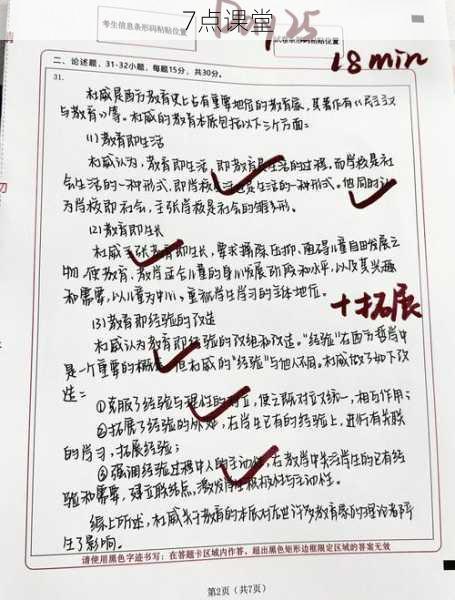 7点课堂
考生信息条形码粘贴位置
Day 25
试卷条形码粘贴位置
18min
二、论述题，31-32小题，每题15分，共30分。
31.
杜威是西方教育史上占有重要地位的教育家，其著作有《民主主义
与教育》等。杜威的教育本质包括以下三个方面：
(1)教育即生活
杜威认为，教育即生活，即教育是生活的过程，而学校是社
会生活的一种形式，即学校生活也是生活的一种形式。他同时认
为学校即社会，主张学校是社会的雏形。
(2)教育即生长
杜威主张教育即生长，要求摒除压抑、阻碍儿童自由发展之
物，使教育、教学适合儿童的身心发展阶段和水平，以及其兴趣
和需要，以儿童为中心，重视学生学习的主体地位。
+拓展
(3)教育即经验的改造
杜威认为教育即经验的改组和改造。“经验”在西方哲学中
是一个重要的概念，但杜威的“经验”与他人不同。杜威做了如下改
造：
①克服了经验与理性的对立，使之既对立又统一，相互作用；
②拓展了经验的外延，在学生已有的经验上，进行有关联
的学习，拓展经验；
③强调经验过程中人的主动性，在教学中关注学生的已有经
验和需要，建立联结点，激发学生积极性与主动性。
综上所述，杜威关于教育的本质对后世许多教育家的理论都
生了影响。
请使用黑色字迹书写；在答题卡区域内作答，超出黑色矩形边框限定区域的答案无效
第2页（共7页）